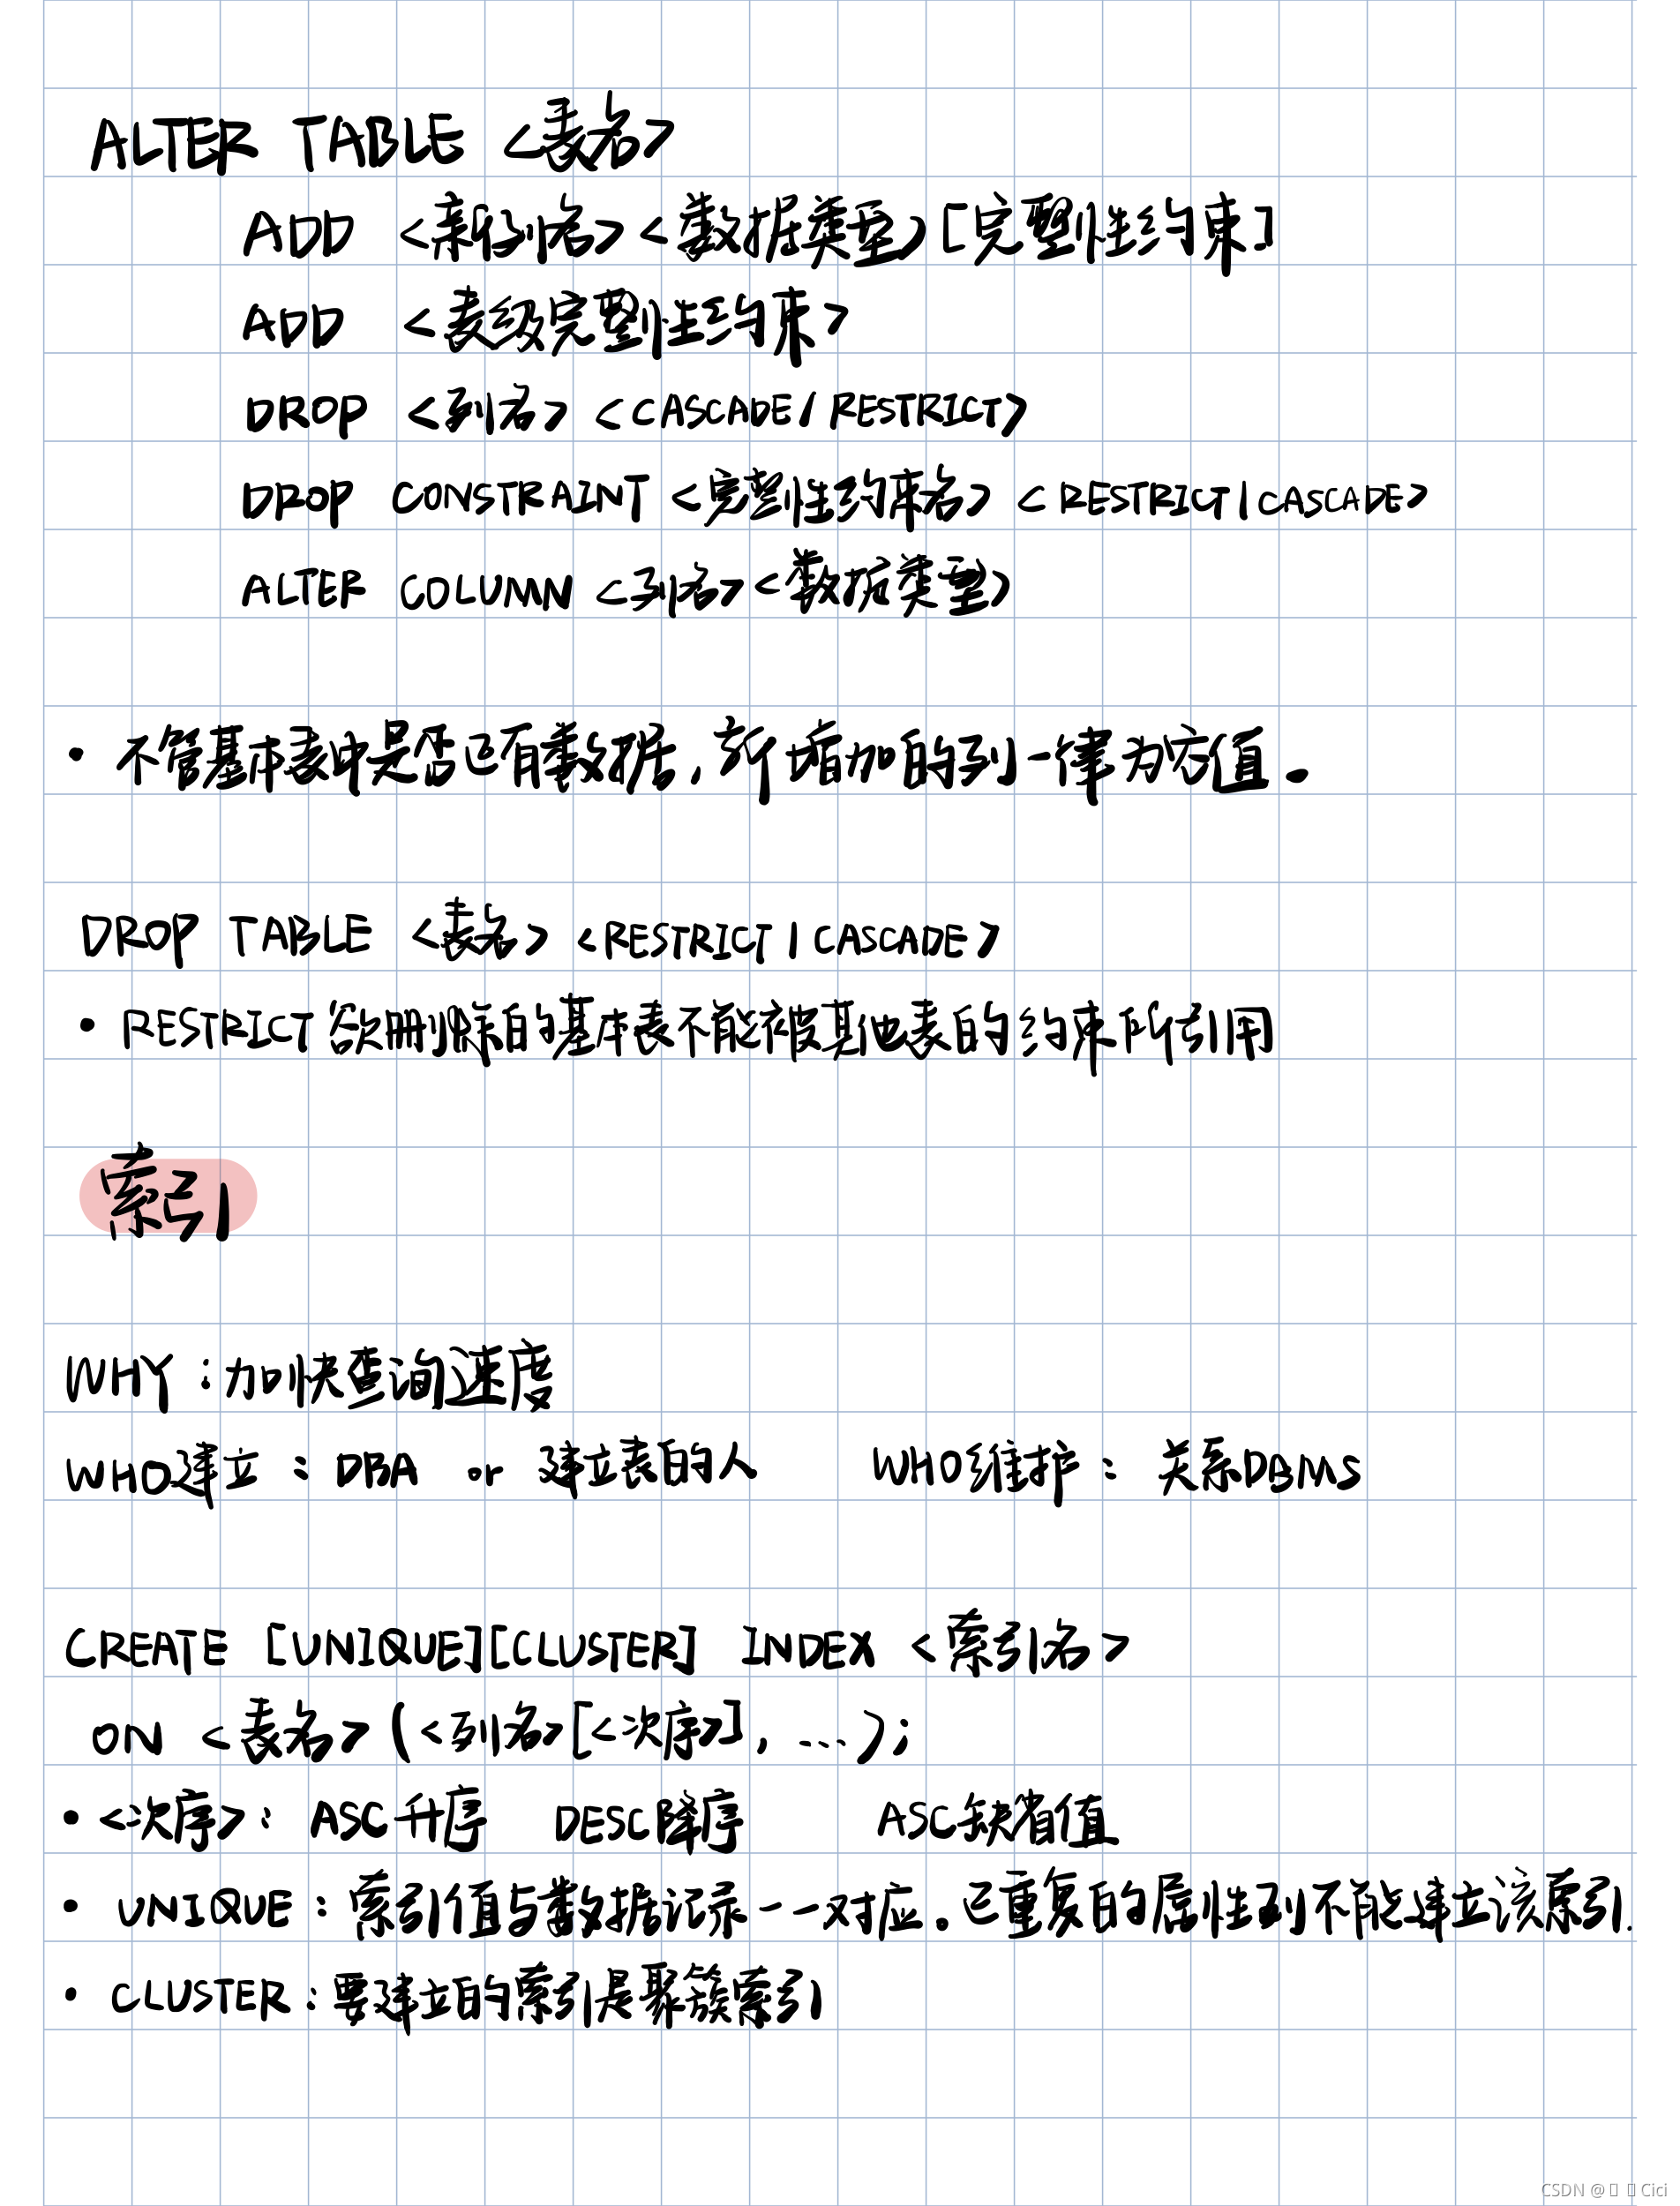 ALTER TABLE <表名>
ADD <新列名> <数据类型> [完整性约束]
ADD <表级完整性约束>
DROP <列名> <CASCADE/RESTRICT>
DROP CONSTRAINT <完整性约束名> <RESTRICT|CASCADE>
ALTER COLUMN <列名> <数据类型>
• 不管基本表中是否已有数据,新增加的列一律为空值。
DROP TABLE <表名> <RESTRICT|CASCADE>
• RESTRICT 欲删除的基本表不能被其他表的约束所引用
索引
WHY:加快查询速度
WHO建立:DBA or 建立表的人 WHO维护:关系DBMS
CREATE [UNIQUE][CLUSTER] INDEX <索引名>
ON <表名> (<列名>[<次序>], ...);
• <次序>: ASC升序 DESC降序 ASC缺省值
• UNIQUE:索引值与数据记录一一对应。已重复的属性列不能建立该索引.
• CLUSTER:要建立的索引是聚簇索引
CSDN @ Cici